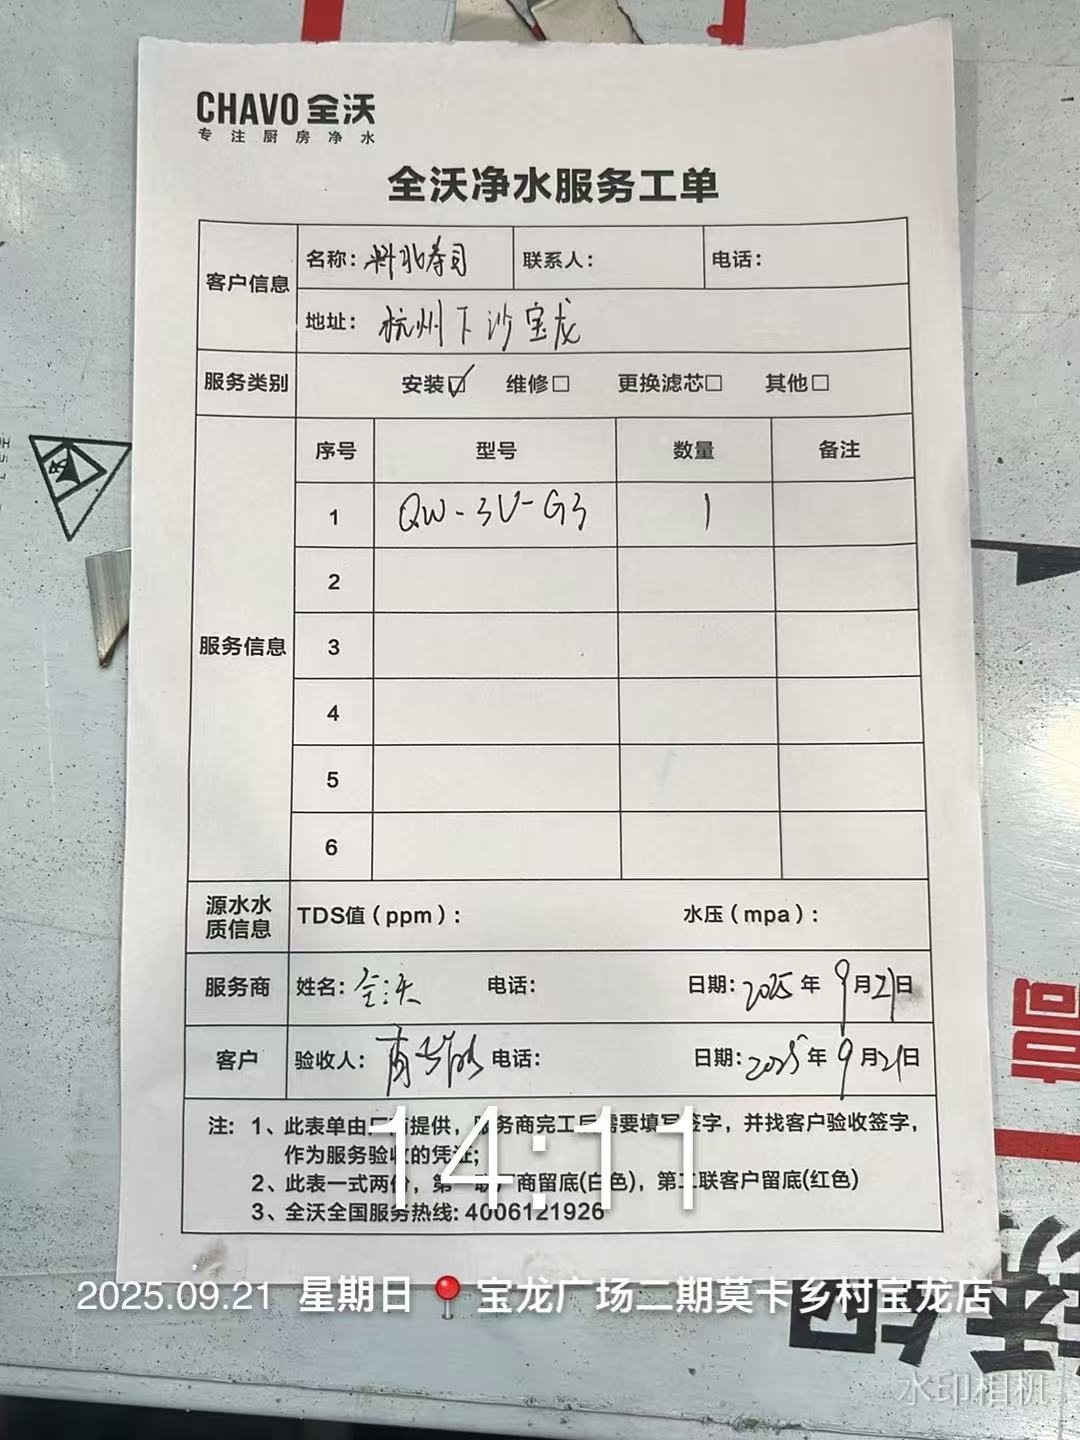 CHAVO 全沃
专注厨房净水
全沃净水服务工单
客户信息 名称： 寿司 联系人： 电话：
地址： 杭州下沙宝龙
服务类别 安装☑ 维修□ 更换滤芯□ 其他□
服务信息 序号 型号 数量 备注
1 QW-3V-G3 1
2
3
4
5
6
源水水质信息 TDS值（ppm）： 水压（mpa）：
服务商 姓名： 全沃 电话： 日期：2025年9月21日
客户 验收人： 电话： 日期：2025年9月21日
注： 1、此表单由厂商提供，服务商完工后需要填写签字，并找客户验收签字，
作为服务验收的凭证；
2、此表一式两份，第一联厂商留底(白色)，第二联客户留底(红色)
3、全沃全国服务热线：4006121926
14:11
2025.09.21 星期日 宝龙广场二期莫卡乡村宝龙店
水印相机